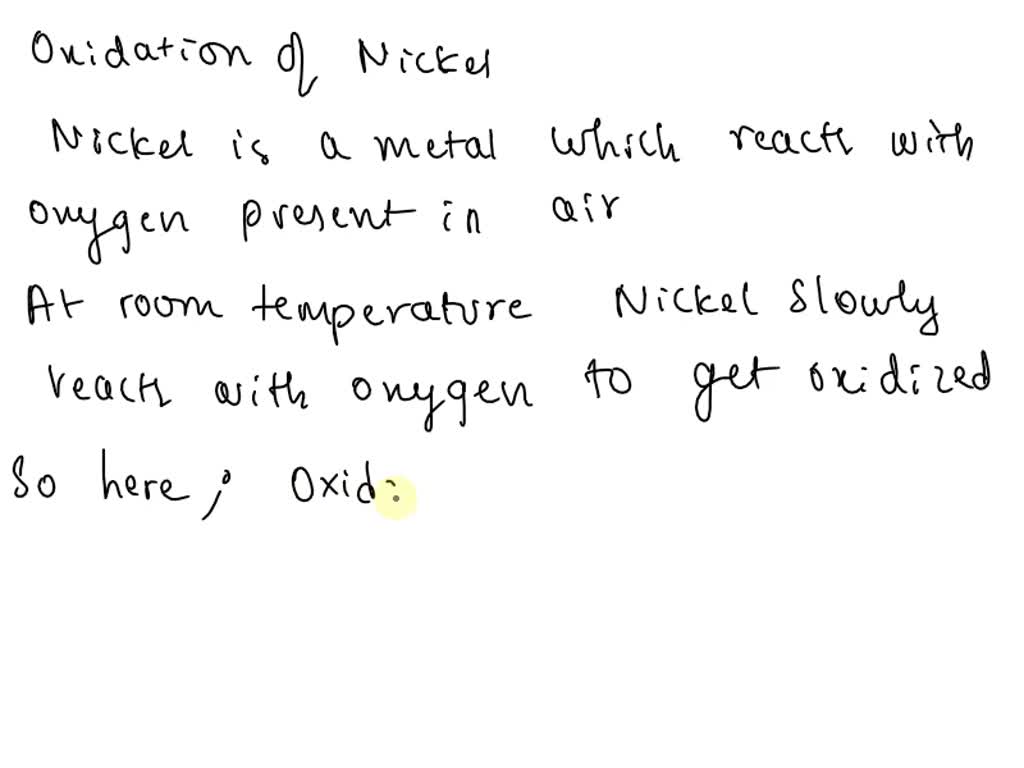 Oxidation of Nickel
Nickel is a metal which reacts with
oxygen present in air
At room temperature Nickel slowly
reacts with oxygen to get oxidized
So here, Oxid